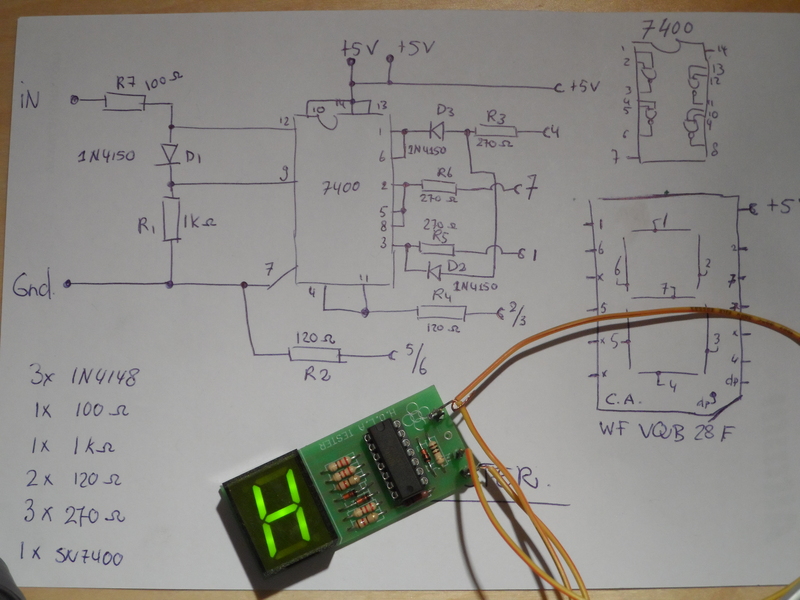 +5V +5V
iN
R7 100Ω
+5V
10 14 13
12
1
D3
R3
4
1N4150
270Ω
1N4150 D1
6
9
7400
2
R6
7
270Ω
5
8
270Ω
R1 1KΩ
3
R5
1
D2
1N4150
Gnd.
7
4 11
R4
2/3
120Ω
120Ω
5/6
R2
7400
1 14
2 13
12
3
4
5 9
6
7 8
+5
1
1
6 2
6 2
x 7
7
5
x 5 3
4
x 4 dp
C.A. dp
WF VQB 28 F
3x 1N4148
1x 100Ω
1x 1KΩ
2x 120Ω
3x 270Ω
1x SN7400
TESTER
H
R.